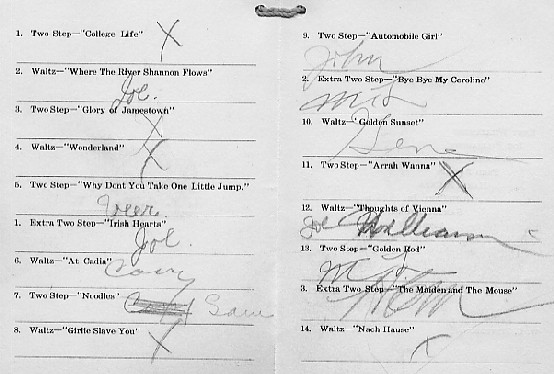 1. Two Step—"College Life" X
2. Waltz—"Where The River Shannon Flows"
Joe.
3. Two Step—"Glory of Jamestown"
X
4. Waltz—"Wonderland"
X
5. Two Step—"Why Dont You Take One Little Jump."
1. Extra Two Step—"Irish Hearts"
Joe.
6. Waltz—"At Cadia"
7. Two Step—"Noodles"
8. Waltz—"Girlie Slave You'
X
9. Two Step—"Automobile Girl'
John
2. Extra Two Step—"Bye Bye My Caroline"
10. Waltz—"Golden Sunset"
Gene
11. Two Step—"Arrah Wanna"
X
12. Waltz—"Thoughts of Vienna"
Joe
13. Two Step—"Golden Rod"
3. Extra Two Step—"The Maiden and The Mouse"
14. Waltz—"Nach Hause"